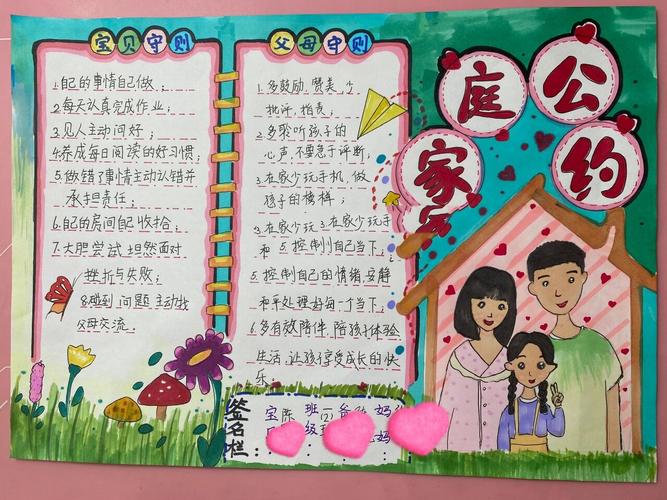 宝贝守则
1.自己的事情自己做;
2.每天认真完成作业;
3.见人主动问好;
4.养成每日阅读的好习惯;
5.做错了事情主动认错并
承担责任;
6.自己的房间自己收拾;
7.大胆尝试坦然面对
挫折与失败;
8.碰到问题主动找
父母交流.
父母守则
1.多鼓励,赞美,少
批评,指责;
2.多聆听孩子的
心声,不要急于评断;
3.在家少玩手机,做
孩子的榜样;
3.在家少玩3.在家少玩手
和 5.控制自己当下;
5.控制自己的情绪,安静
和平处理好每一个当下;
6.多有效陪伴,陪孩子体验
生活,让孩子享受成长的快
乐.
家庭公约
签名栏:
宝 陈 班(2) 爸 妈
级 妈